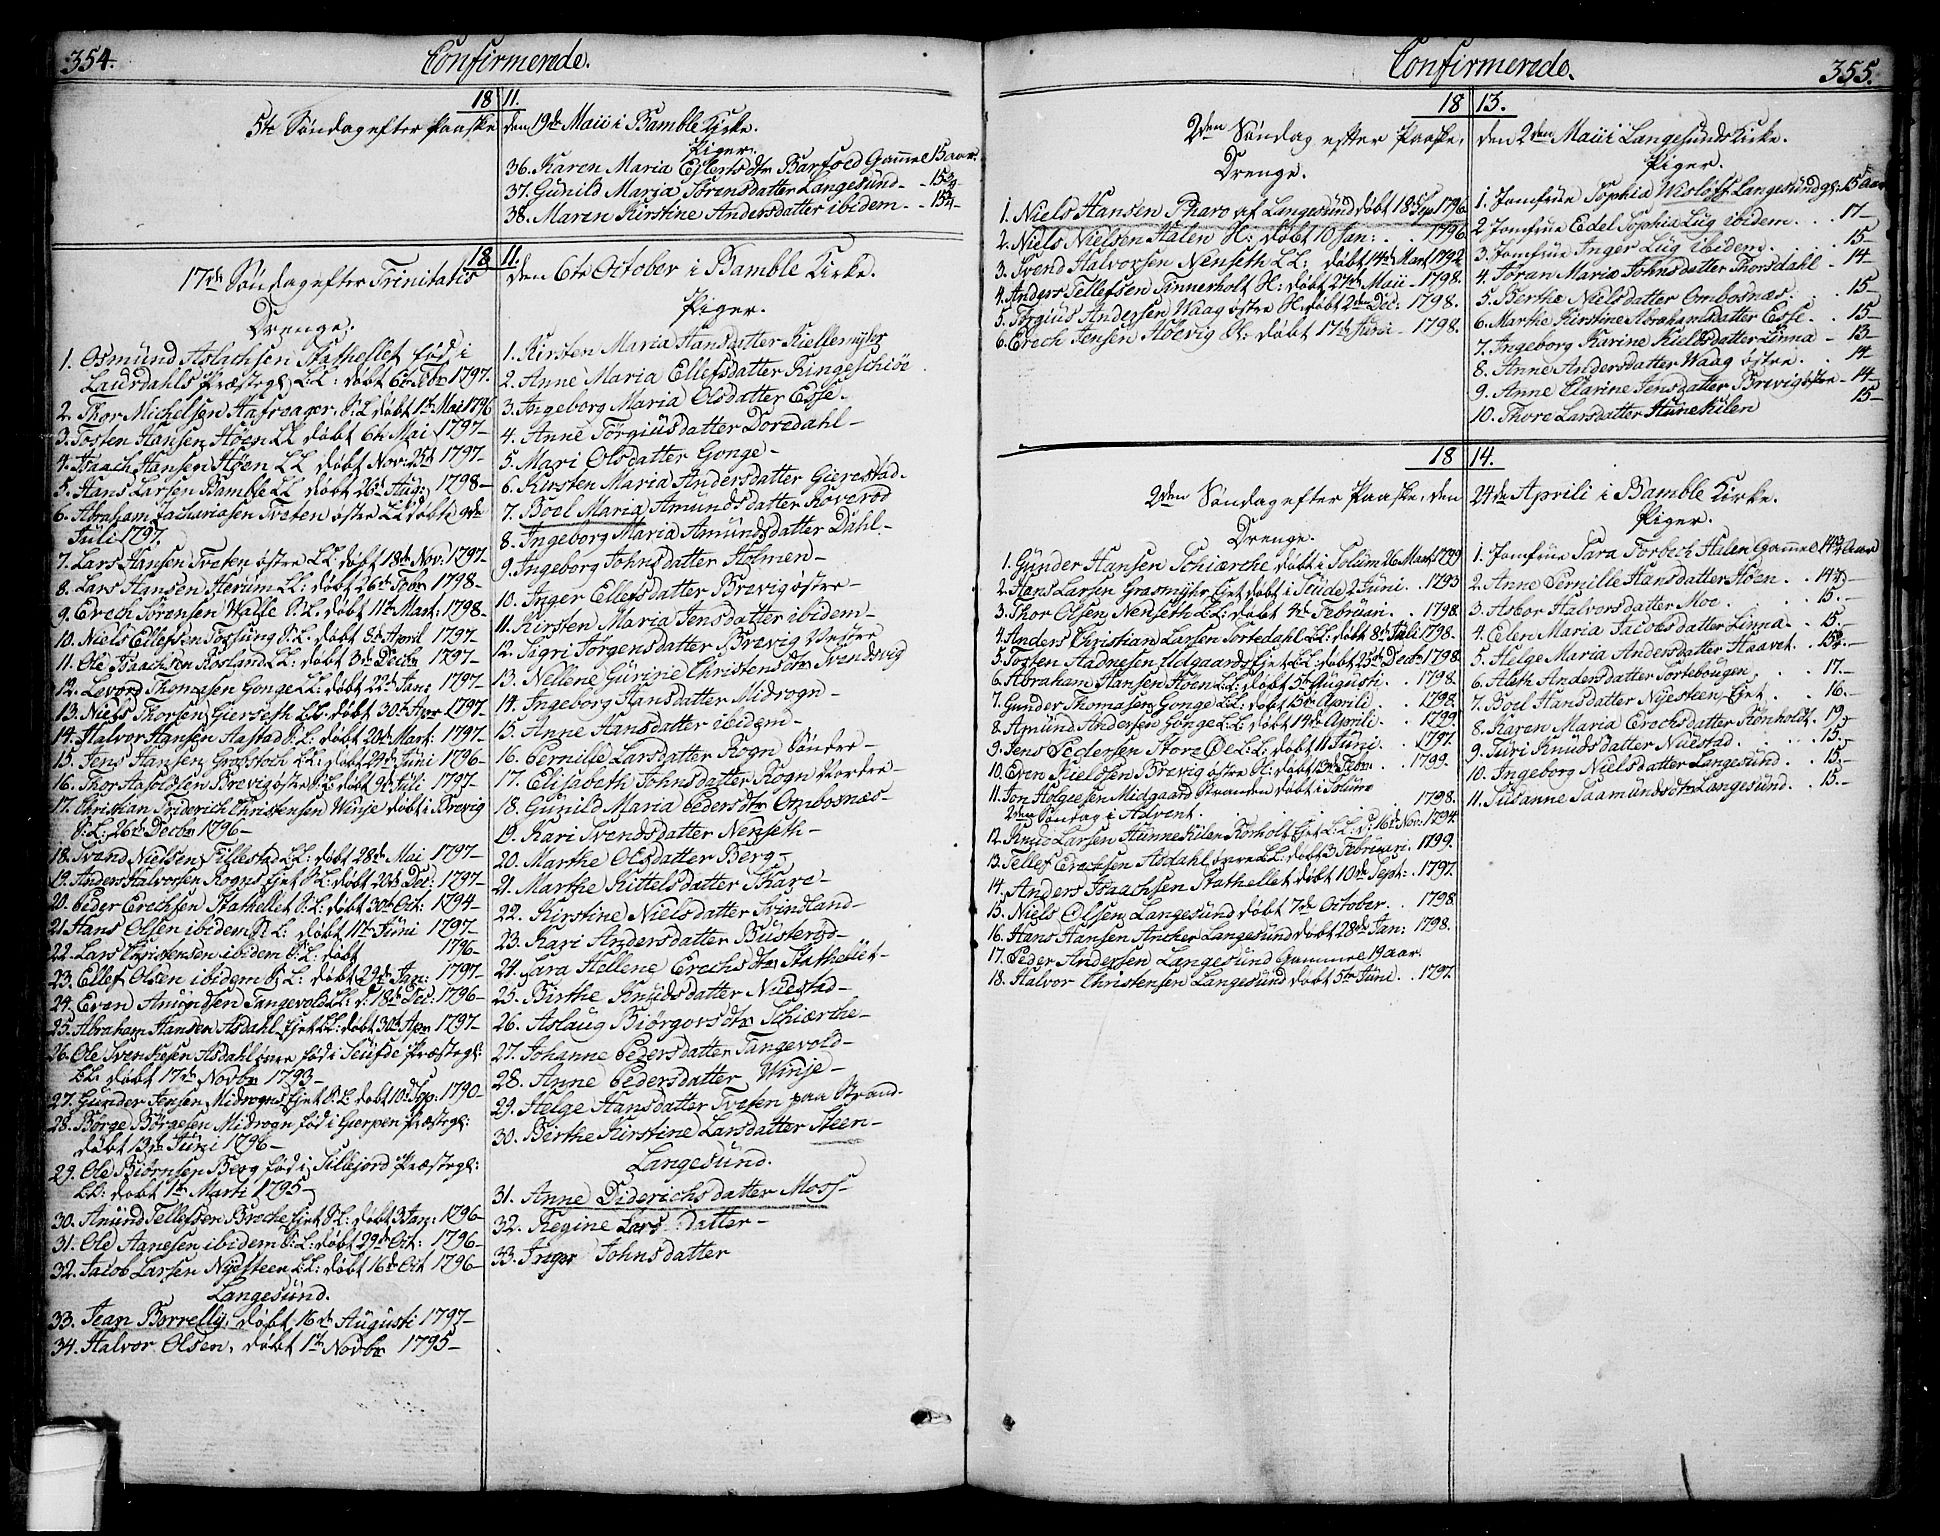 354.
Confirmerede.
1811.
5te Søndag efter Paaske den 19de Maii i Bamble Kirke.
Piger.
36. Karen Maria Ejlertsdtr Barfod Gammel 15 aar.
37. Gunild Maria Sørensdatter Langesund - 15¾
38. Maren Kirstine Andersdatter ibidem - 15¼
1811.
17de Søndag efter Trinitatis den 6te October i Bamble Kirke.
Drenge.
1. Osmund Aslachsen Stathellet fød i
Laurdahls Præstegl. LL: døbt 6te Febr 1797.
2. Thor Michelsen Aafreager, S:L døbt 1te Mai 1796
3. Tosten Hansen Høen LL døbt 6te Mai 1797-
4. Isaach Hansen Høen LL døbt Nov: 25d 1797.
5. Hans Larsen Bamble LL døbt 26de Aug: 1798-
6. Abraham Zachariasen Tveten østre LL døbt 9de
Juli 1797.
7. Lars Hansen Tveten østre LL døbt 18de Nov. 1797-
8. Lars Hansen Herum LL: døbt 26de 1798-
9. Erech Sørensen Valle S:L: døbt 11te Mart: 1798.
10. Niels Ellefsen Toftung S:L: døbt 8de April 1797-
11. Ole Isaachsen Rosland LL: døbt 3de Decbr 1797-
12. Levord Thomasen Gonge LL: døbt 22de Jan: 1797-
13. Niels Thorsen Gierseth LL: døbt 30te Apr 1797-
14. Halvor Hansen Aastad S:L: døbt 20de Mart: 1797-
15. Jens Hansen Grobstoch LL: døbt 29de Juni 1796-
16. Thor Brevig østre S:L døbt 9de Juli 1797-
17. Christian Friderich Christensen Winje døbt i Brevig
S:L: 26de Decbr 1796-
18. Svend Nielsen Fillestad LL: døbt 28de Mai 1797-
19. Anders Halvorsen Rogns Ejet S:L: døbt 20de Dec: 1797-
20. Peder Erechsen Stathellet S:L: døbt 30te Oct: 1794-
21 Hans Olsen ibidem S:L: døbt 11te Juni 1797-
22. Lars Christensen ibidem S:L: døbt 1796-
23. Ellef Olsen ibidem S:L: døbt 29de Jan: 1797-
24. Even Amundsen Tangevold LL: d: 18de Dec: 1796-
25. Abraham Hansen Asdahl Ejet LL: døbt 30te Apr 1797-
26. Ole Svenkesen Asdahl øvre fød i Seufde Præstegl:
LL: døbt 17de Novbr 1793-
27. Gunder Jensen Midrogns Ejet S:L døbt 10de Sep: 1790-
28. Børge Børgesen Midrogn fød i Gjerpen Præstegl:
døbt 13de Juni 1796-
29. Ole Biørnsen Berg fød i Sillejord Præstegl:
LL: døbt 1te Marti 1795-
30. Amund Tellefsen Broche Ejet S:L: døbt 3 Jan: 1796-
31. Ole Aanesen ibidem S:L: døbt 29de Oct: 1796-
32. Jacob Larsen Nydsteen LL: døbt 16de Oct 1796-
Langesund.
33. Jean Borrelly, døbt 16de Augusti 1797-
34. Halvor Olsen, døbt 1te Novbr 1795-
Piger.
1. Kirsten Maria Hansdatter Kiellemyhr
2. Anne Maria Ellefsdatter Ringeschiöe
3. Ingeborg Maria Olsdatter Esse.
4. Anne Torgiusdatter Doredahl-
5. Mari Olsdatter Gonge-
6. Kirsten Maria Andersdatter Gierestad-
7. Boel Maria Amundsdatter Roverod
8. Ingeborg Maria Amundsdatter Dahl-
9. Ingeborg Johnsdatter Holmen-
10. Inger Ellefsdatter Brevig østre-
11. Kirsten Maria Jensdatter ibidem-
12. Sigri Jørgensdatter Brevig Vestre
13. Nellene Gurine Christensdtr Svendsvig
14. Ingeborg Hansdatter Midrogn-
15. Anne Hansdatter ibidem-
16. Pernille Larsdatter Rogn Søndre-
17. Elisabeth Johnsdatter Rogn Nordre-
18. Gunild Maria Pedersdtr Ombosnæs-
19. Kari Svendsdatter Nenseth-
20. Marthe Olsdatter Berg-
21. Marthe Kittelsdatter Skare-
22. Kirstine Nielsdatter Svindland-
23. Kari Andersdatter Busterød-
24. Sara Hellene Erechsdtr Stathellet-
25. Birthe Knudsdatter Nuestad-
26. Aslaug Biørgovsdtr Schiærche-
27. Johanne Pedersdatter Tangevold-
28. Anne Pedersdatter Winje-
29. Helge Hansdatter Tveten paa Strand-
30. Birthe Kirstine Larsdatter Steen-
Langesund.
31. Anne Diderichsdatter Moss-
32. Regine Larsdatter-
33. Inger Johnsdatter
Confirmerede.
355.
1813.
2den Søndag efter Paaske, den 2den Maii i Langesunds Kirke.
Drenge.
1. Niels Hansen Pharo af Langesund døbt 18 Sep 1796
2. Niels Nielsen Halen S: døbt 10 Jan: 1796.
3. Svend Halvorsen Nenseth LL: døbt 14de Mart 1792
4. Anders Tellefsen Tinnerholt S: døbt 27de Maii 1798.
5. Torgius Andersen Waag østre S: døbt 2den Dec: 1798.
6. Erech Jensen Aabevig S: døbt 17de Juni - 1798.
Piger.
1. Jomfrue Sophia Wisloff Langesund gl: 15 Aar
2 Jomfrue Edel Sophia Lug ibidem. 17-
3. Jomfrue Inger Lug ibidem. 15-
4. Joran Maria Johnsdatter Thorsdahl - 14
5. Berthe Nielsdatter Ombosnæs. 15-
6. Marthe Kirstine Abrahamsdatter Esse. 15-
7. Ingeborg Karine Kieldsdatter Linna - 13-
8. Anne Andersdatter Waag østre. 14
9. Anne Clarine Jensdatter Brevig østre - 14-
10. Thore Larsdatter Hunekilen 15-
1814.
2den Søndag efter Paaske, den 24de Aprili i Bamble Kirke.
Drenge.
1. Gunder Hansen Schiærche døbt i Solum 26 Mart 1799
2. Hans Larsen Grasmyhr Ejet døbt i Seude 2 Juni. 1793
3. Thor Olsen Nenseth LL: døbt 4de Februari. 1798.
4. Anders Christian Larsen Tortedahl LL: døbt 8de Juli 1798.
5. Tosten Hadnesen Udgaards Ejet LL: døbt 25de Decbr 1798.
6. Abraham Hansen Høen LL: døbt 5te Augusti. 1798.
7. Gunder Thomasen Gonge LL: døbt 15de Aprili. 1798.
8. Amund Andersen Gonge LL: døbt 14de Aprili. 1799.
9. Jens Pedersen Store Øe LL: døbt 11 Juni. 1797.
10. Even Kieldsen Brevig østre S: døbt 13de Febr 1799.
11. Jon Helgesen Midgaard Stranden døbt i Solum 1798.
2den Søndag i Advent.
12. Knud Larsen Hunnekilen Rørholt Ejet LL: d: 16de Nov: 1794.
13. Tellef Erechsen Asdahl øvre LL: døbt 3 Februari. 1799.
14. Anders Isaachsen Stathellet døbt 10de Sept: 1797.
15. Niels Olsen Langesund døbt 7de October. 1798
16. Hans Hansen Ancher Langesund døbt 28de Jan: 1798.
17. Peder Andersen Langesund Gammel 19 aar.
18. Halvor Christensen Langesund døbt 5te Juni. 1797.
Piger.
1. Jomfrue Sara Forbech Halen Gammel 14¾ Aar
2. Anne Pernille Hansdatter Høen. 14¾-
3. Asbør Halvorsdatter Moe. 15.-
4. Elen Maria Jacobsdatter Linna. 15.-
5. Helge Maria Andersdatter Haavet. 15½-
6. Aleth Andersdatter Tortebougen 17.-
7. Boel Hansdatter Nyesteen, Ejet 16.-
8. Karen Maria Erechsdatter Rønholdt. 19.-
9. Turi Knudsdatter Nuestad. 15.-
10. Ingeborg Nielsdatter Langesund. 15.-
11. Susanne Saamundsdtr Langesund. 15.-